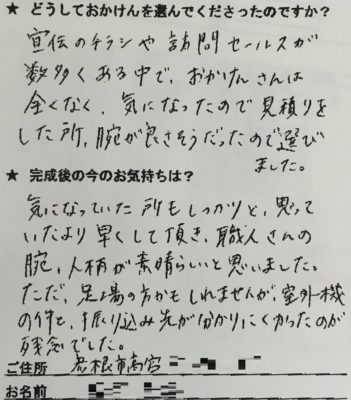 ★ どうしておかけんを選んでくださったのですか?
宣伝のチラシや訪問セールスが
数多くある中で、おかけんさんは
全くなく、気になったので見積りを
した所、腕が良さそうだったので選び
ました。
★ 完成後の今のお気持ちは?
気になっていた所もしっかりと、思って
いたより早くして頂き、職人さんの
腕、人柄が素晴らしいと思いました。
ただ、足場の方かもしれませんが、室外機
の件と、振り込み先が分かりにくかったのが
残念でした。
ご住所 彦根市高宮
お名前